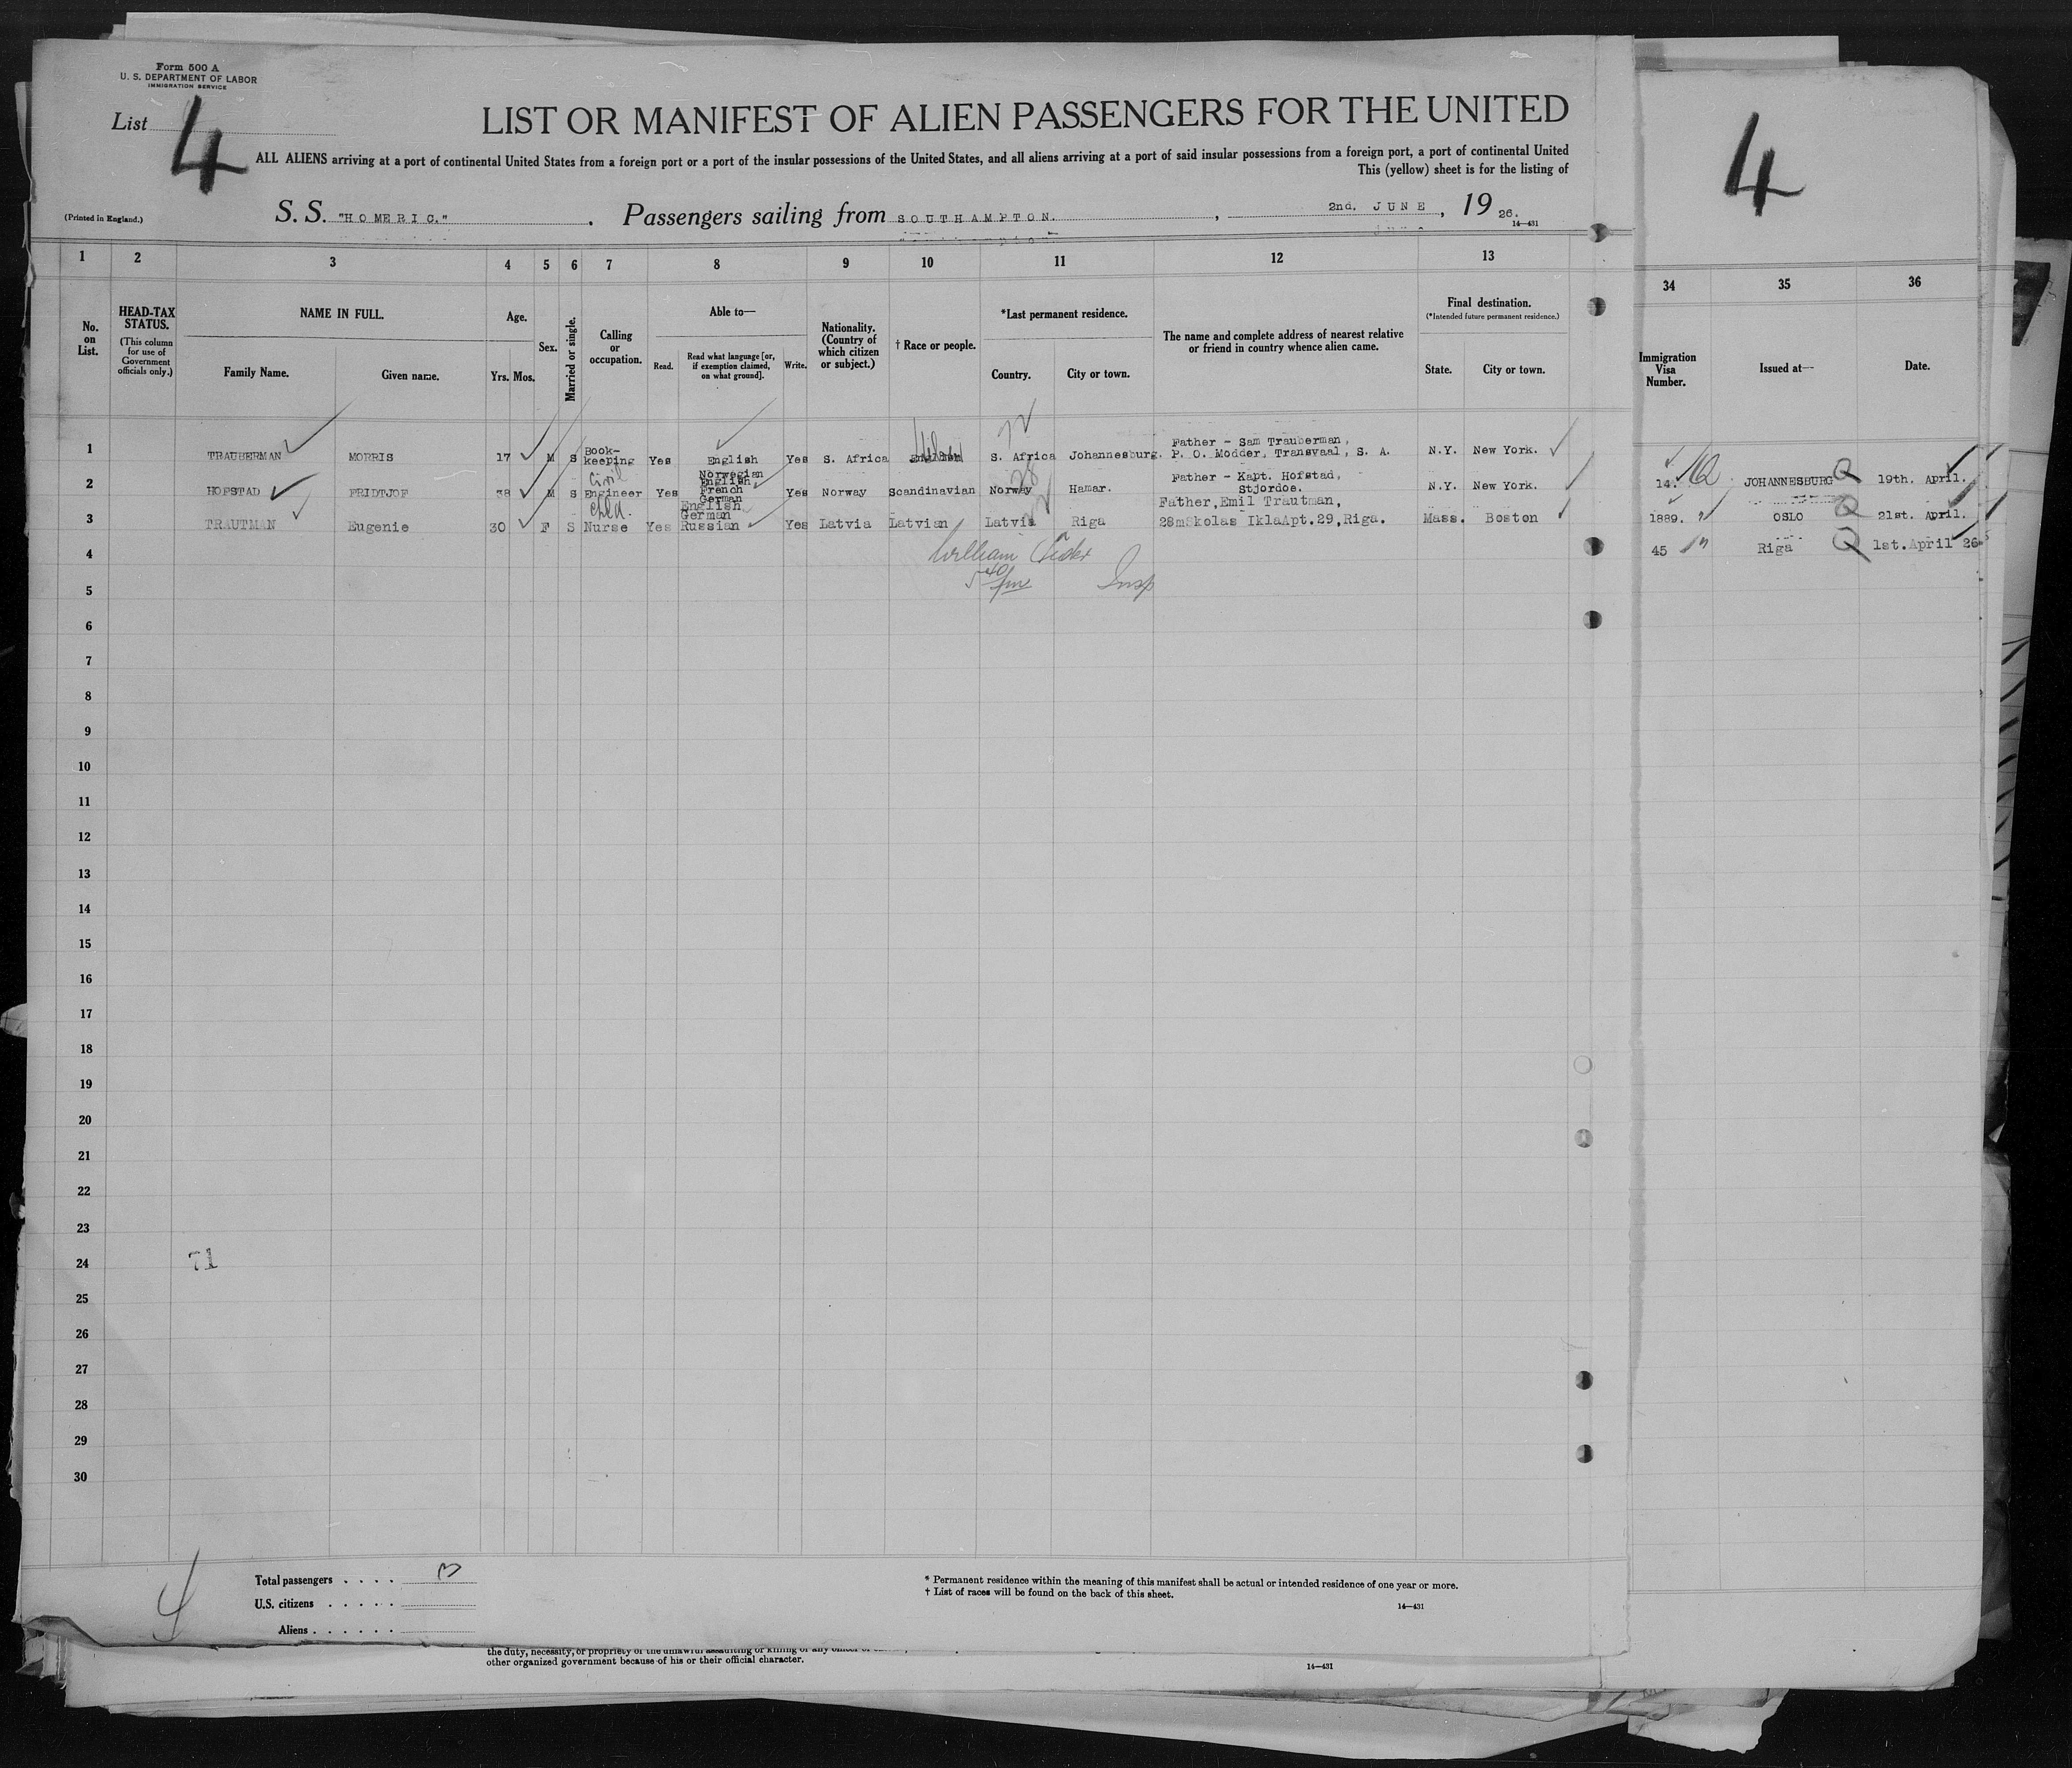 Form 500 A
U. S. DEPARTMENT OF LABOR
IMMIGRATION SERVICE
List 4
LIST OR MANIFEST OF ALIEN PASSENGERS FOR THE UNITED
ALL ALIENS arriving at a port of continental United States from a foreign port or a port of the insular possessions of the United States, and all aliens arriving at a port of said insular possessions from a foreign port, a port of continental United
This (yellow) sheet is for the listing of
(Printed in England.)
S. S. "HOMERIC." . Passengers sailing from SOUTHAMPTON. , 2nd. JUNE , 19 26.
14—431
4
1 2 3 4 5 6 7 8 9 10 11 12 13 34 35 36
No. on List.
HEAD-TAX STATUS.
(This column for use of Government officials only.)
NAME IN FULL.
Family Name. Given name.
Age.
Yrs. Mos.
Sex.
Married or single.
Calling or occupation.
Able to—
Read. Read what language [or, if exemption claimed, on what ground]. Write.
Nationality. (Country of which citizen or subject.)
† Race or people.
*Last permanent residence.
Country. City or town.
The name and complete address of nearest relative or friend in country whence alien came.
Final destination.
(*Intended future permanent residence.)
State. City or town.
Immigration Visa Number.
Issued at—
Date.
1 TRAUBERMAN MORRIS 17 M S Book-keeping Yes English Yes S. Africa English S. Africa Johannesburg. Father - Sam Trauberman, P. O. Modder, Transvaal, S. A. N.Y. New York.
14. JOHANNESBURG 19th. April.
2 HOFSTAD FRIDTJOF 38 M S Civil Engineer Yes Norwegian English French German Yes Norway Scandinavian Norway Hamar. Father - Kapt. Hofstad, Stjordoe. N.Y. New York.
1889. OSLO 21st. April.
3 TRAUTMAN Eugenie 30 F S Chld. Nurse Yes English German Russian Yes Latvia Latvian Latvia Riga Father, Emil Trautman, 28mSkolas IklaApt.29,Riga. Mass. Boston
45 Riga 1st. April 26
4
William
5 40 pm Insp
5
6
7
8
9
10
11
12
13
14
15
16
17
18
19
20
21
22
23
24
71
25
26
27
28
29
30
4
Total passengers . . . . 3
U.S. citizens . . . . .
Aliens . . . . . .
* Permanent residence within the meaning of this manifest shall be actual or intended residence of one year or more.
† List of races will be found on the back of this sheet.
14—431
the duty, necessity, or propriety of the unlawful assaulting or killing of any officer
other organized government because of his or their official character.
14—431